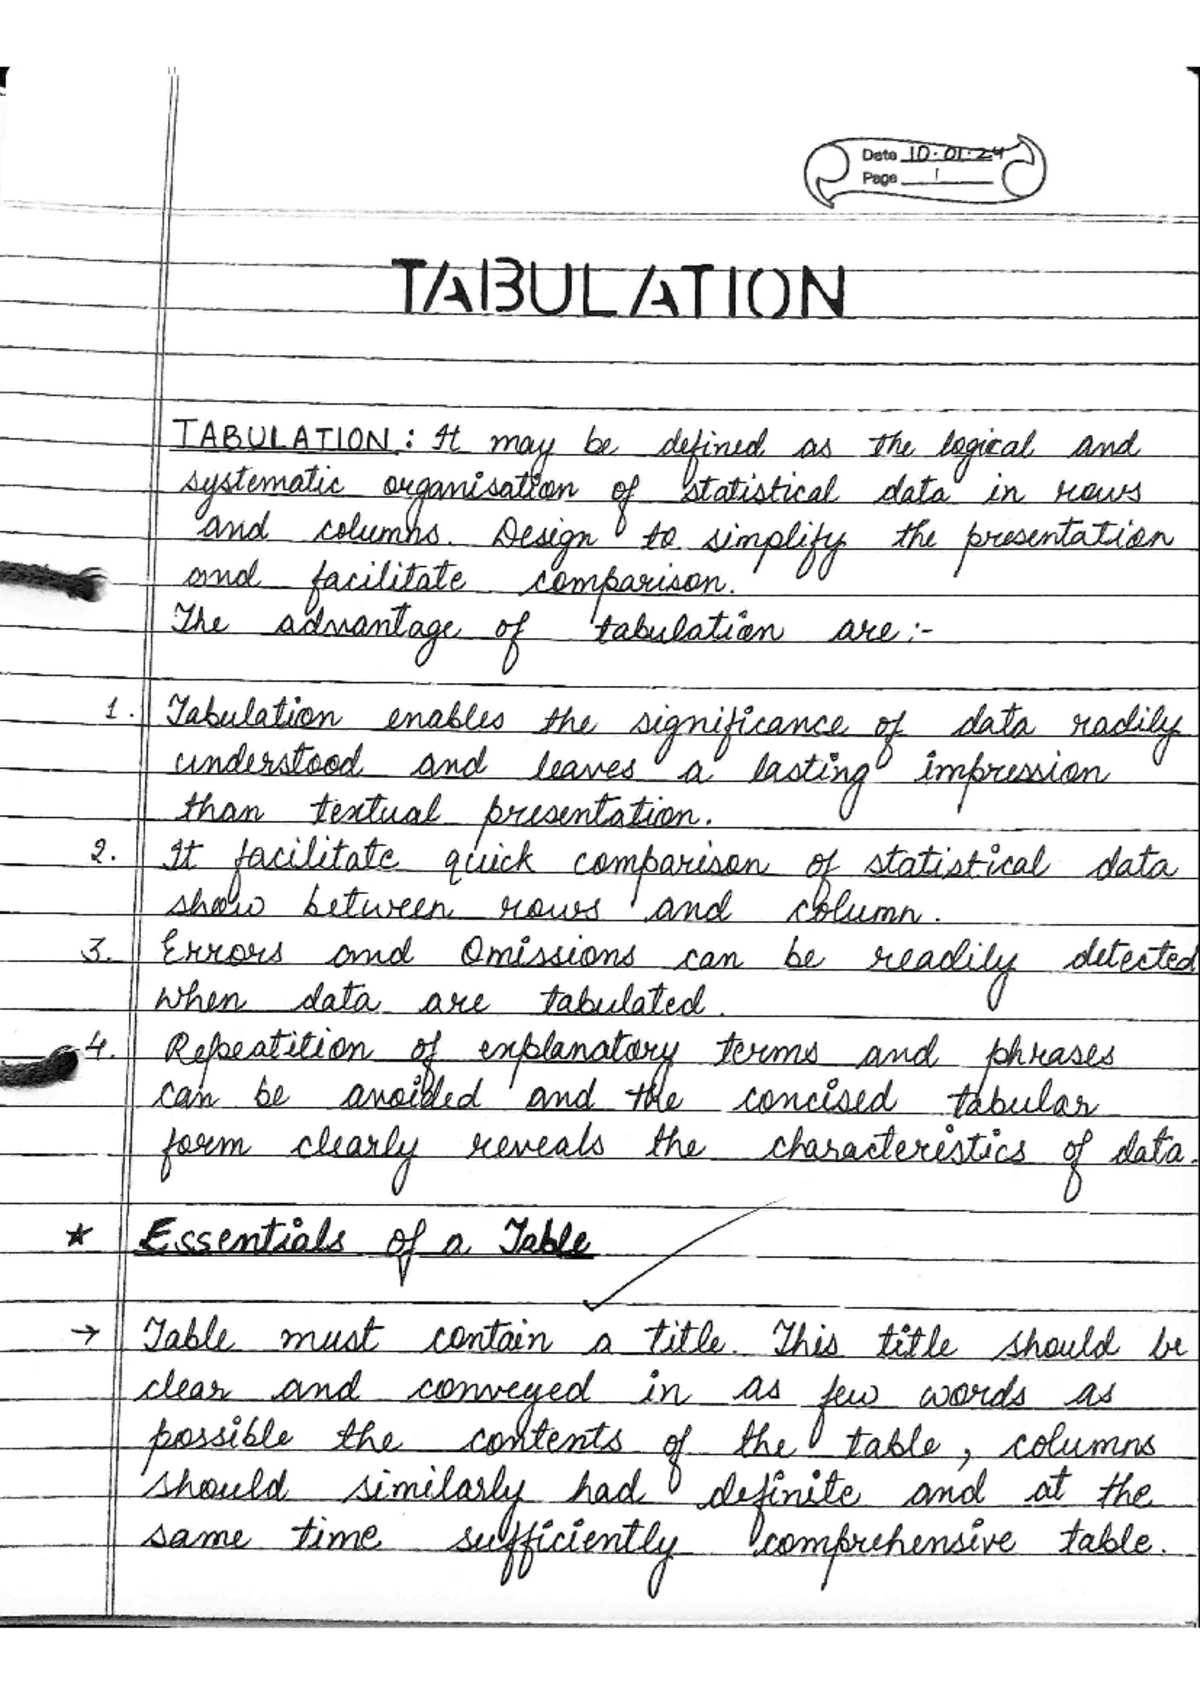 Date 10.01.24
Page 1
TABULATION
TABULATION: It may be defined as the logical and
systematic organisation of statistical data in rows
and columns. Design to simplify the presentation
and facilitate comparison.
The advantage of tabulation are:-
1. Tabulation enables the significance of data radily
understood and leaves a lasting impression
than textual presentation.
2. It facilitate quick comparison of statistical data
show between rows and column.
3. Errors and Omissions can be readily detected
when data are tabulated.
4. Repeatition of explanatory terms and phrases
can be avoided and the concised tabular
form clearly reveals the characteristics of data.
★ Essentials of a Table
→ Table must contain a title. This title should be
clear and conveyed in as few words as
possible the contents of the table, columns
should similarly had definite and at the
same time sufficiently comprehensive table.